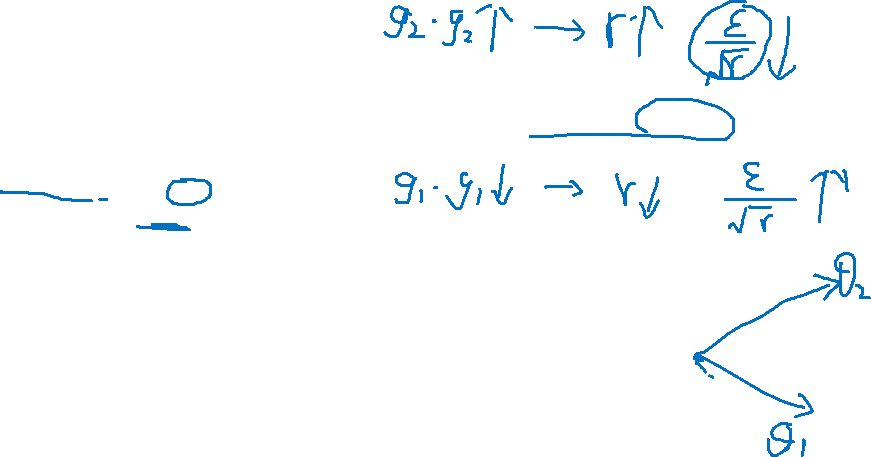 g₂·g₂↑ → r↑ ε/√r ↓
g₁·g₁↓ → r↓ ε/√r ↑
θ₂
θ₁